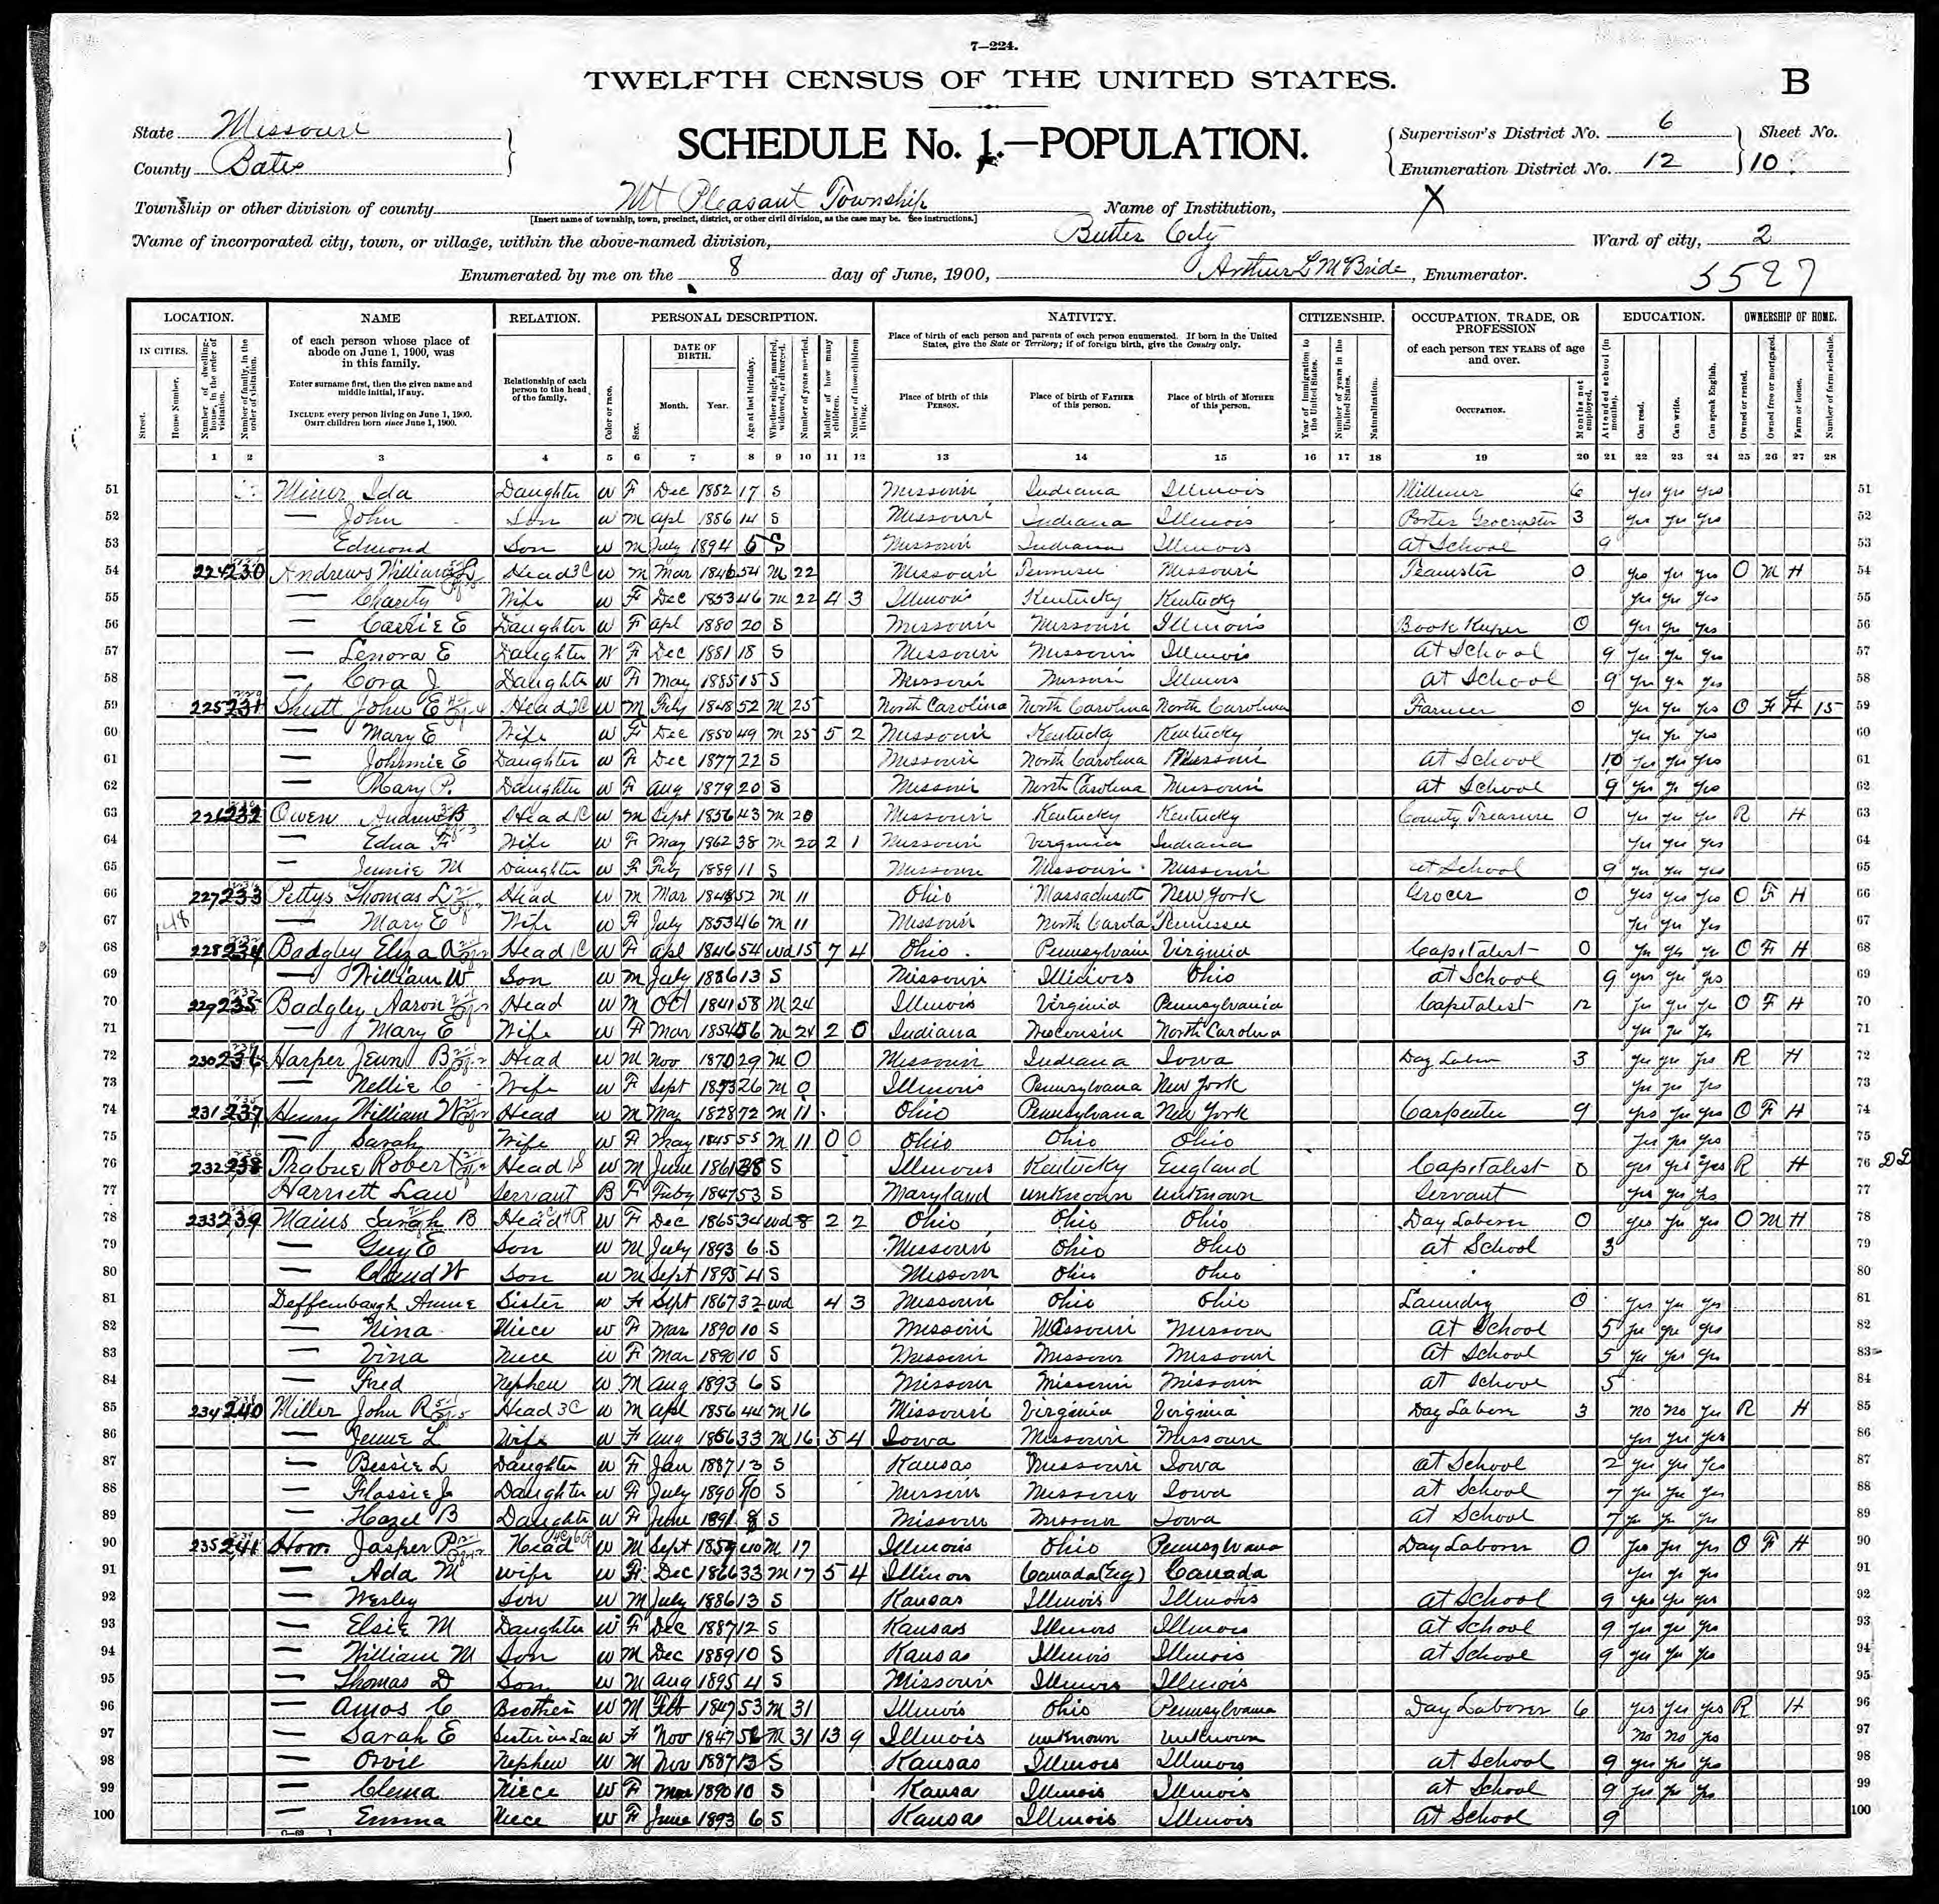 7—224.
TWELFTH CENSUS OF THE UNITED STATES.
B
State Missouri
County Bates
SCHEDULE No. 1.—POPULATION.
Supervisor's District No. 6
Enumeration District No. 12
Sheet No.
10
Township or other division of county Mt Pleasant Township
[Insert name of township, town, precinct, district, or other civil division, as the case may be. See instructions.]
Name of Institution, X
Name of incorporated city, town, or village, within the above-named division, Butler City
Ward of city, 2
Enumerated by me on the 8 day of June, 1900, Arthur L McBride, Enumerator.
5527
LOCATION. NAME RELATION. PERSONAL DESCRIPTION. NATIVITY. CITIZENSHIP. OCCUPATION, TRADE, OR PROFESSION EDUCATION. OWNERSHIP OF HOME.
IN CITIES.
Street.
House Number.
Number of dwelling-house, in the order of visitation.
Number of family, in the order of visitation.
of each person whose place of abode on June 1, 1900, was in this family.
Enter surname first, then the given name and middle initial, if any.
INCLUDE every person living on June 1, 1900. OMIT children born since June 1, 1900.
Relationship of each person to the head of the family.
Color or race.
Sex.
DATE OF BIRTH.
Month. Year.
Age at last birthday.
Whether single, married, widowed, or divorced.
Number of years married.
Mother of how many children.
Number of these children living.
Place of birth of each person and parents of each person enumerated. If born in the United States, give the State or Territory; if of foreign birth, give the Country only.
Place of birth of this PERSON.
Place of birth of FATHER of this person.
Place of birth of MOTHER of this person.
Year of immigration to the United States.
Number of years in the United States.
Naturalization.
of each person TEN YEARS of age and over.
OCCUPATION.
Months not employed.
Attended school (in months).
Can read.
Can write.
Can speak English.
Owned or rented.
Owned free or mortgaged.
Farm or home.
Number of farm schedule.
1 2 3 4 5 6 7 8 9 10 11 12 13 14 15 16 17 18 19 20 21 22 23 24 25 26 27 28
51 Miner Ida Daughter W F Dec 1882 17 S Missouri Indiana Illinois Milliner 6 yes yes yes 51
52 — John Son W M Apl 1886 14 S Missouri Indiana Illinois Porter 3 yes yes yes 52
53 Edmond Son W M July 1894 5 S Missouri Indiana Illinois At School 9 53
54 224 230 Andrews William Head 3C W M Mar 1846 54 M 22 Missouri Missouri Teamster 0 yes yes yes O M H 54
55 — Charity Wife W F Dec 1853 46 M 22 4 3 Illinois Kentucky Kentucky yes yes yes 55
56 — Carrie E Daughter W F Apl 1880 20 S Missouri Missouri Illinois Book Keeper 0 yes yes yes 56
57 — Lenora E Daughter W F Dec 1881 18 S Missouri Missouri Illinois At School 9 yes yes yes 57
58 — Cora J Daughter W F May 1885 15 S Missouri Missouri Illinois At School 9 yes yes yes 58
59 225 231 Shutt John E Head 2C W M Feby 1848 52 M 25 North Carolina North Carolina North Carolina Farmer 0 yes yes yes O F 15 59
60 — Mary E Wife W F Dec 1850 49 M 25 5 2 Missouri Kentucky Kentucky yes yes yes 60
61 — Johnnie E Daughter W F Dec 1877 22 S Missouri North Carolina Missouri At School 10 yes yes yes 61
62 — Mary P. Daughter W F Aug 1879 20 S Missouri North Carolina Missouri At School 9 yes yes yes 62
63 226 232 Owen Andrew B Head 1C W M Sept 1856 43 M 20 Missouri Kentucky Kentucky County Treasure 0 yes yes yes R H 63
64 — Edna F Wife W F May 1862 38 M 20 2 1 Missouri Virginia Indiana yes yes yes 64
65 — Jennie M Daughter W F Feby 1889 11 S Missouri Missouri Missouri at School 9 yes yes yes 65
66 227 233 Pettys Thomas L Head W M Mar 1848 52 M 11 Ohio Massachusetts New York Grocer 0 yes yes yes O F H 66
67 148 — Mary E Wife W F July 1853 46 M 11 Missouri North Carola yes yes yes 67
68 228 234 Badgley Eliza A Head 1C W F Apl 1846 54 wd 15 7 4 Ohio Pennsylvain Virginia Capitalist 0 yes yes yes O F H 68
69 — William W Son W M July 1886 13 S Missouri Illinois Ohio at School 9 yes yes yes 69
70 229 235 Badgley Aaron Head W M Oct 1841 58 M 24 Illinois Virginia Pennsylvania Capitalist 12 yes yes yes O F H 70
71 — Mary E Wife W F Mar 1854 46 M 24 2 0 Indiana Wisconsin North Carolina yes yes yes 71
72 230 236 Harper B Head W M Nov 1870 29 M 0 Missouri Indiana Iowa Day Labor 3 yes yes yes R H 72
73 — Nellie C Wife W F Sept 1873 26 M 0 Illinois Pennsylvana New York yes yes yes 73
74 231 237 Henry William W Head W M May 1828 72 M 11 Ohio Pennsylvana New York Carpenter 9 yes yes yes O F H 74
75 — Sarah Wife W F May 1845 55 M 11 0 0 Ohio Ohio Ohio yes yes yes 75
76 232 238 Trabue Robert Head 1S W M June 1861 38 S Illinois Kentucky England Capitalist 0 yes yes yes R H 76
77 Harriett Law Servant B F Feby 1847 53 S Maryland unknown unknown Servant yes yes yes 77
78 233 239 Mains Sarah B Head W F Dec 1865 34 wd 8 2 2 Ohio Ohio Ohio Day Laborer 0 yes yes yes O M H 78
79 — Guy E Son W M July 1893 6 S Missouri Ohio Ohio at School 3 79
80 — Claud W Son W M Sept 1895 4 S Missouri Ohio Ohio 80
81 Deffenbaugh Annie Sister W F Sept 1867 32 wd 4 3 Missouri Ohio Ohio Laundry 0 yes yes yes 81
82 — Nina Niece W F Mar 1890 10 S Missouri Missouri Missouri at School 5 yes yes yes 82
83 — Vina Niece W F Mar 1890 10 S Missouri Missouri Missouri at School 5 yes yes yes 83
84 — Fred Nephew W M Aug 1893 6 S Missouri Missouri Missouri at School 5 84
85 234 240 Miller John R Head 3C W M Apl 1856 44 M 16 Missouri Virginia Virginia Day Labore 3 no no yes R H 85
86 — Jenne L Wife W F Aug 1866 33 M 16 5 4 Iowa Missouri Missouri yes yes yes 86
87 — Bessie L Daughter W F Jan 1887 13 S Kansas Missouri Iowa at School 2 yes yes yes 87
88 — Flossie J Daughter W F July 1890 S Missouri Missouri Iowa at School 7 yes yes yes 88
89 — Hazel B Daughter W F June 1891 8 S Missouri Missouri Iowa at School 7 yes yes yes 89
90 235 241 Horn Jasper P Head W M Sept 1859 40 M 17 Illinois Ohio Pennsylvana Day Laborer 0 yes yes yes O F H 90
91 — Ada M Wife W F Dec 1866 33 M 17 5 4 Illinois Canada (Eng) Canada yes yes yes 91
92 — Wesley Son W M July 1886 13 S Kansas Illinois Illinois at School 9 yes yes yes 92
93 — Elsie M Daughter W F Dec 1887 12 S Kansas Illinois Illinois at School 9 yes yes yes 93
94 — William M Son W M Dec 1889 10 S Kansas Illinois Illinois at School 9 yes yes yes 94
95 — Thomas D Son W M Aug 1895 4 S Missouri Illinois Illinois 95
96 — Amos C Brother W M Feb 1847 53 M 31 Illinois Ohio Pennsylvana Day Laborer 6 yes yes yes R H 96
97 — Sarah E Sister in Law W F Nov 1847 M 31 13 9 Illinois unknown unknown no no yes 97
98 — Orvil Nephew W M Nov 1887 13 S Kansas Illinois Illinois at School 9 yes yes yes 98
99 — Clema Niece W F Mar 1890 10 S Kansa Illinois Illinois at School 9 yes yes yes 99
100 — Emma Niece W F June 1893 6 S Kansas Illinois Illinois at School 9 100